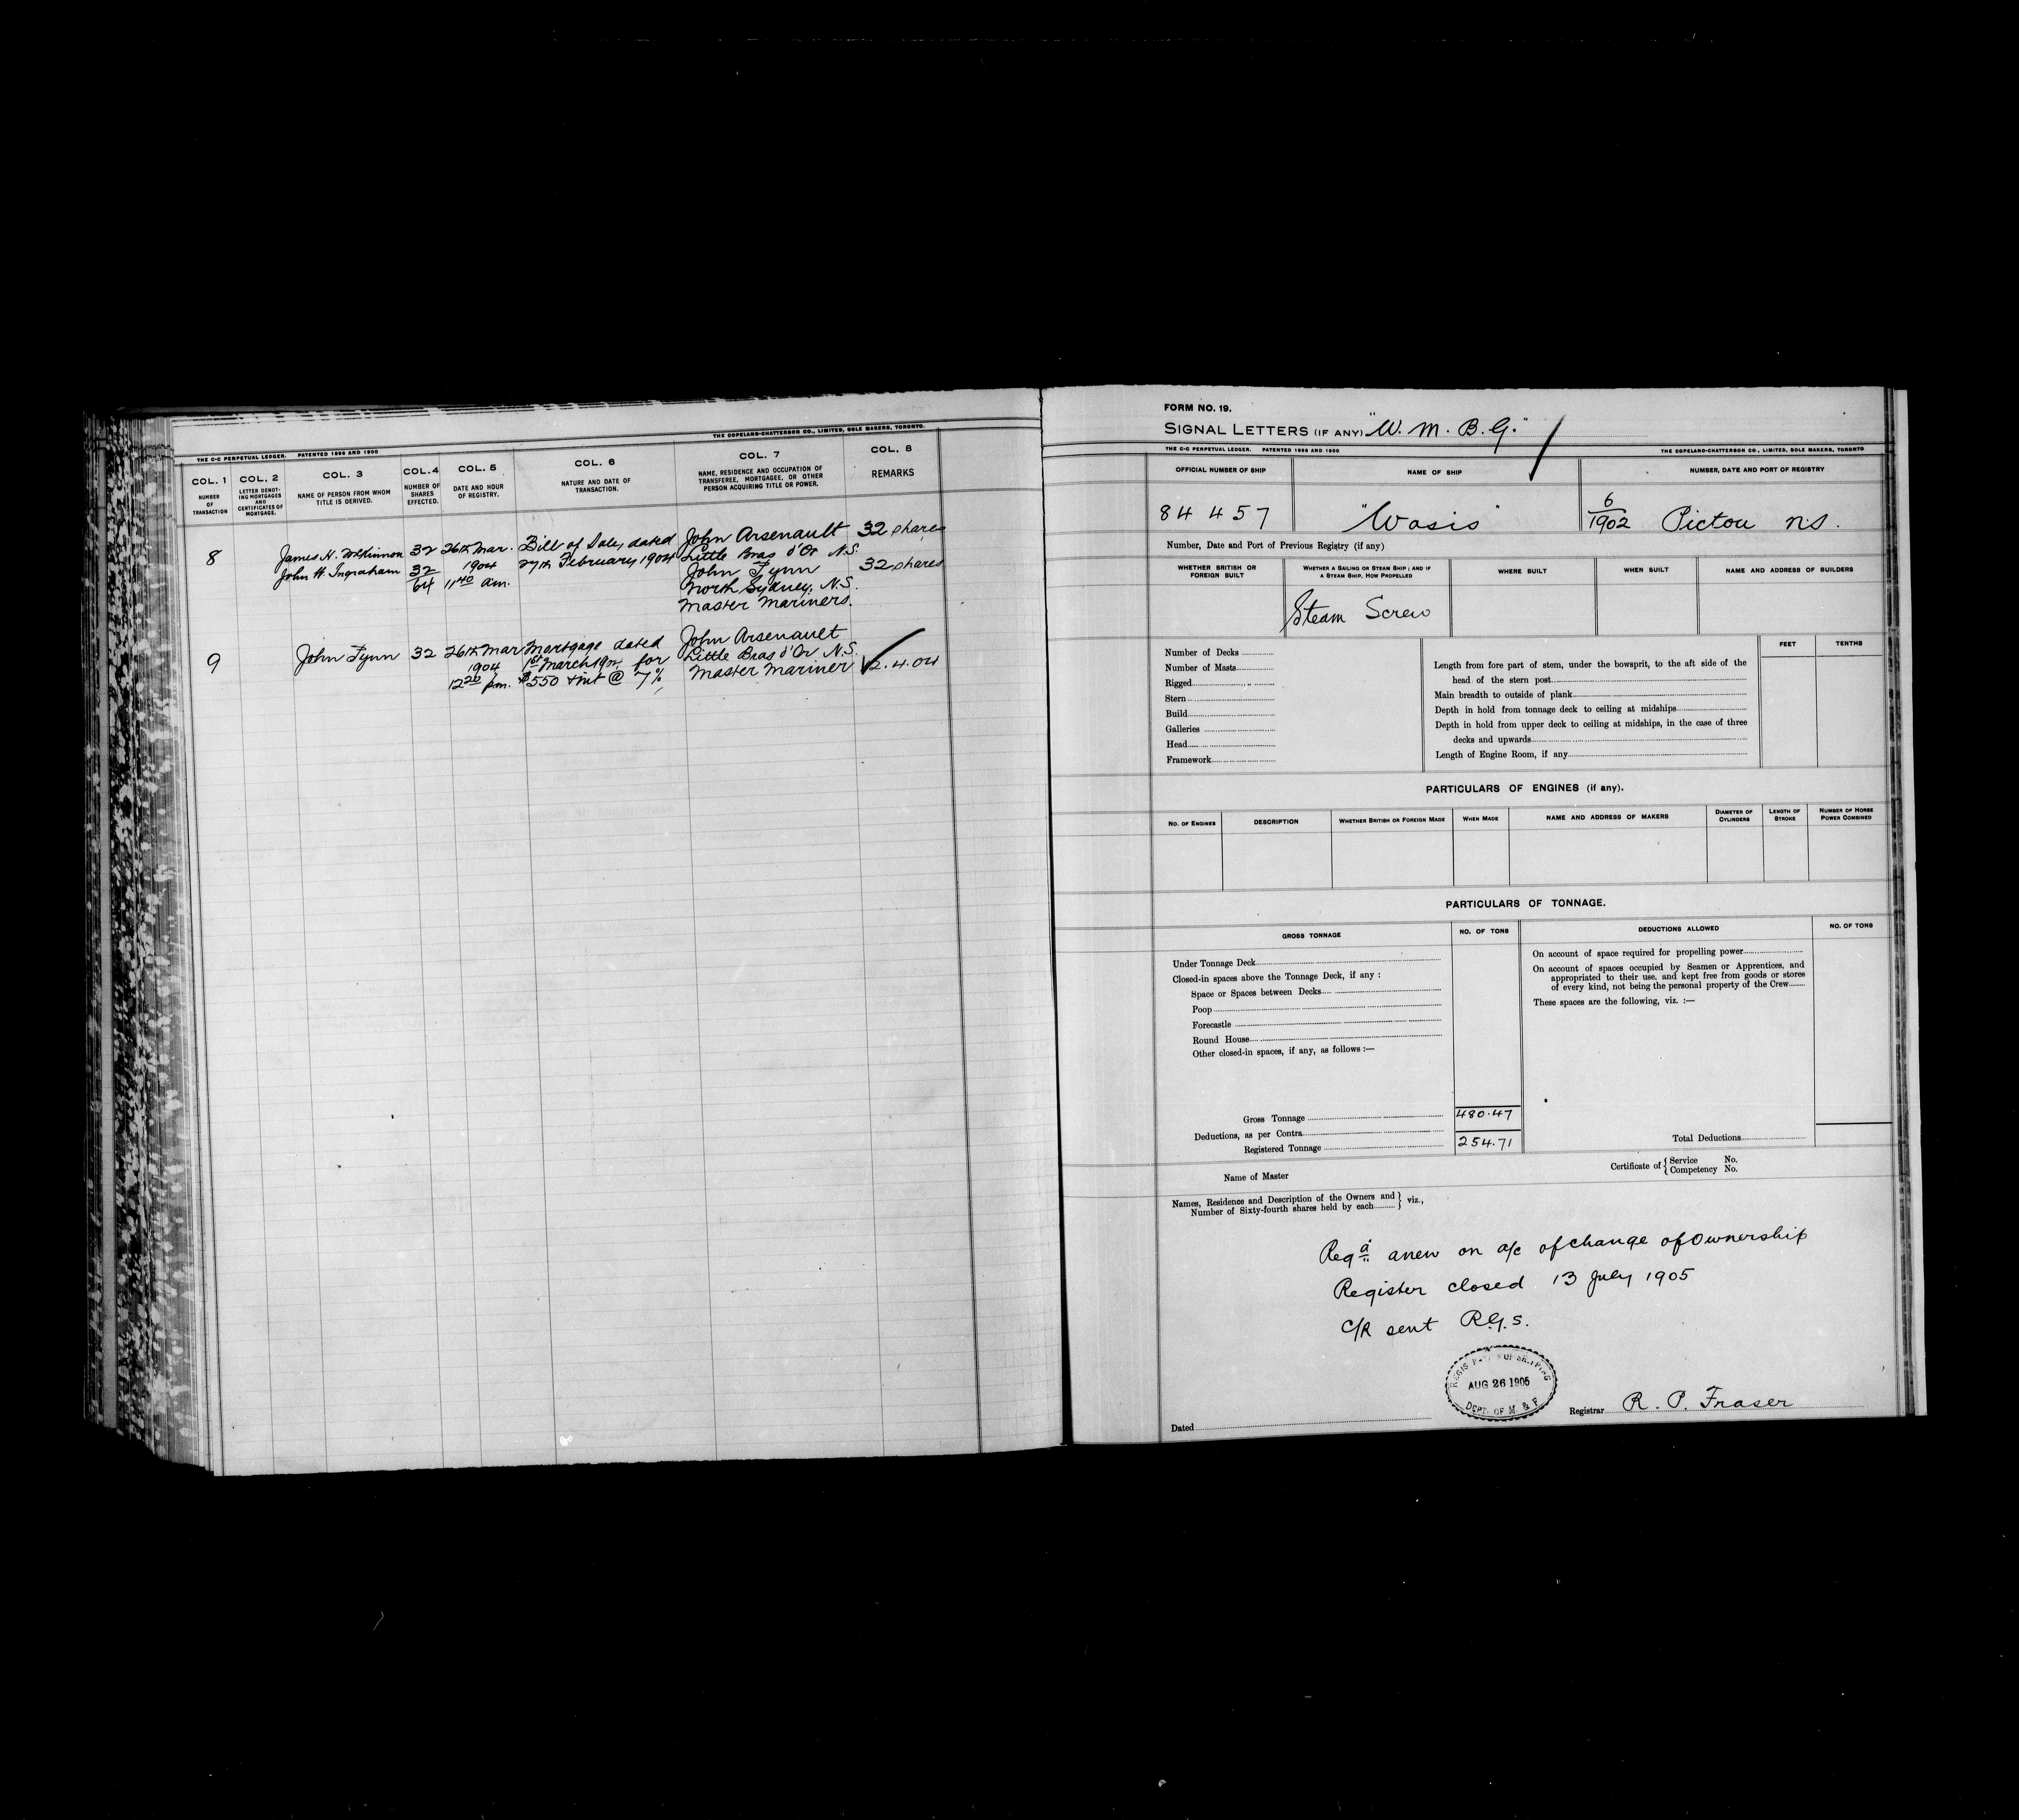 THE COPELAND-CHATTERSON CO., LIMITED, SOLE MAKERS, TORONTO.
THE C-C PERPETUAL LEDGER. PATENTED 1896 AND 1900
COL. 1 COL. 2 COL. 3 COL. 4 COL. 5 COL. 6 COL. 7 COL. 8
NUMBER OF TRANSACTION
LETTER DENOTING MORTGAGES AND CERTIFICATES OF MORTGAGE.
NAME OF PERSON FROM WHOM TITLE IS DERIVED.
NUMBER OF SHARES EFFECTED.
DATE AND HOUR OF REGISTRY.
NATURE AND DATE OF TRANSACTION.
NAME, RESIDENCE AND OCCUPATION OF TRANSFEREE, MORTGAGEE, OR OTHER PERSON ACQUIRING TITLE OR POWER.
REMARKS
8 James H. McKinnon 32 26th Mar. Bill of Sale, dated John Arsenault 32 shares
John H. Ingraham 32 1904 27th February 1904 Little Bras d'Or N.S.
64 11 40 am. John Fynn 32 shares
North Sydney, N.S.
Master Mariners.
9 John Fynn 32 26th Mar Mortgage dated John Arsenault
1904 1st March 190 for Little Bras d'Or N.S.
12 20 pm. $550 + int @ 7% Master Mariner 2.4.04
FORM NO. 19.
SIGNAL LETTERS (IF ANY) "W. M. B. G."
THE C-C PERPETUAL LEDGER. PATENTED 1896 AND 1900 THE COPELAND-CHATTERSON CO., LIMITED, SOLE MAKERS, TORONTO
OFFICIAL NUMBER OF SHIP NAME OF SHIP NUMBER, DATE AND PORT OF REGISTRY
84457 "Wasis" 6/1902 Pictou NS.
Number, Date and Port of Previous Registry (if any)
WHETHER BRITISH OR FOREIGN BUILT
WHETHER A SAILING OR STEAM SHIP; AND IF A STEAM SHIP, HOW PROPELLED
WHERE BUILT WHEN BUILT NAME AND ADDRESS OF BUILDERS
Steam Screw
FEET TENTHS
Number of Decks
Number of Masts
Rigged
Stern
Build
Galleries
Head
Framework
Length from fore part of stem, under the bowsprit, to the aft side of the
head of the stern post
Main breadth to outside of plank
Depth in hold from tonnage deck to ceiling at midships
Depth in hold from upper deck to ceiling at midships, in the case of three
decks and upwards
Length of Engine Room, if any
PARTICULARS OF ENGINES (if any).
NO. OF ENGINES DESCRIPTION WHETHER BRITISH OR FOREIGN MADE WHEN MADE NAME AND ADDRESS OF MAKERS DIAMETER OF CYLINDERS LENGTH OF STROKE NUMBER OF HORSE POWER COMBINED
PARTICULARS OF TONNAGE.
GROSS TONNAGE NO. OF TONS DEDUCTIONS ALLOWED NO. OF TONS
Under Tonnage Deck
Closed-in spaces above the Tonnage Deck, if any :
Space or Spaces between Decks
Poop
Forecastle
Round House
Other closed-in spaces, if any, as follows :—
On account of space required for propelling power
On account of spaces occupied by Seamen or Apprentices, and
appropriated to their use, and kept free from goods or stores
of every kind, not being the personal property of the Crew
These spaces are the following, viz. :—
Gross Tonnage 480.47
Deductions, as per Contra
Registered Tonnage 254.71
Total Deductions
Name of Master
Certificate of { Service No.
Competency No.
Names, Residence and Description of the Owners and
Number of Sixty-fourth shares held by each } viz.,
Regd anew on a/c of change of Ownership
Register closed 13 July 1905
C/R sent R.G.S.
AUG 26 1905
DEPT. OF M. & F.
Dated
Registrar R. P. Fraser